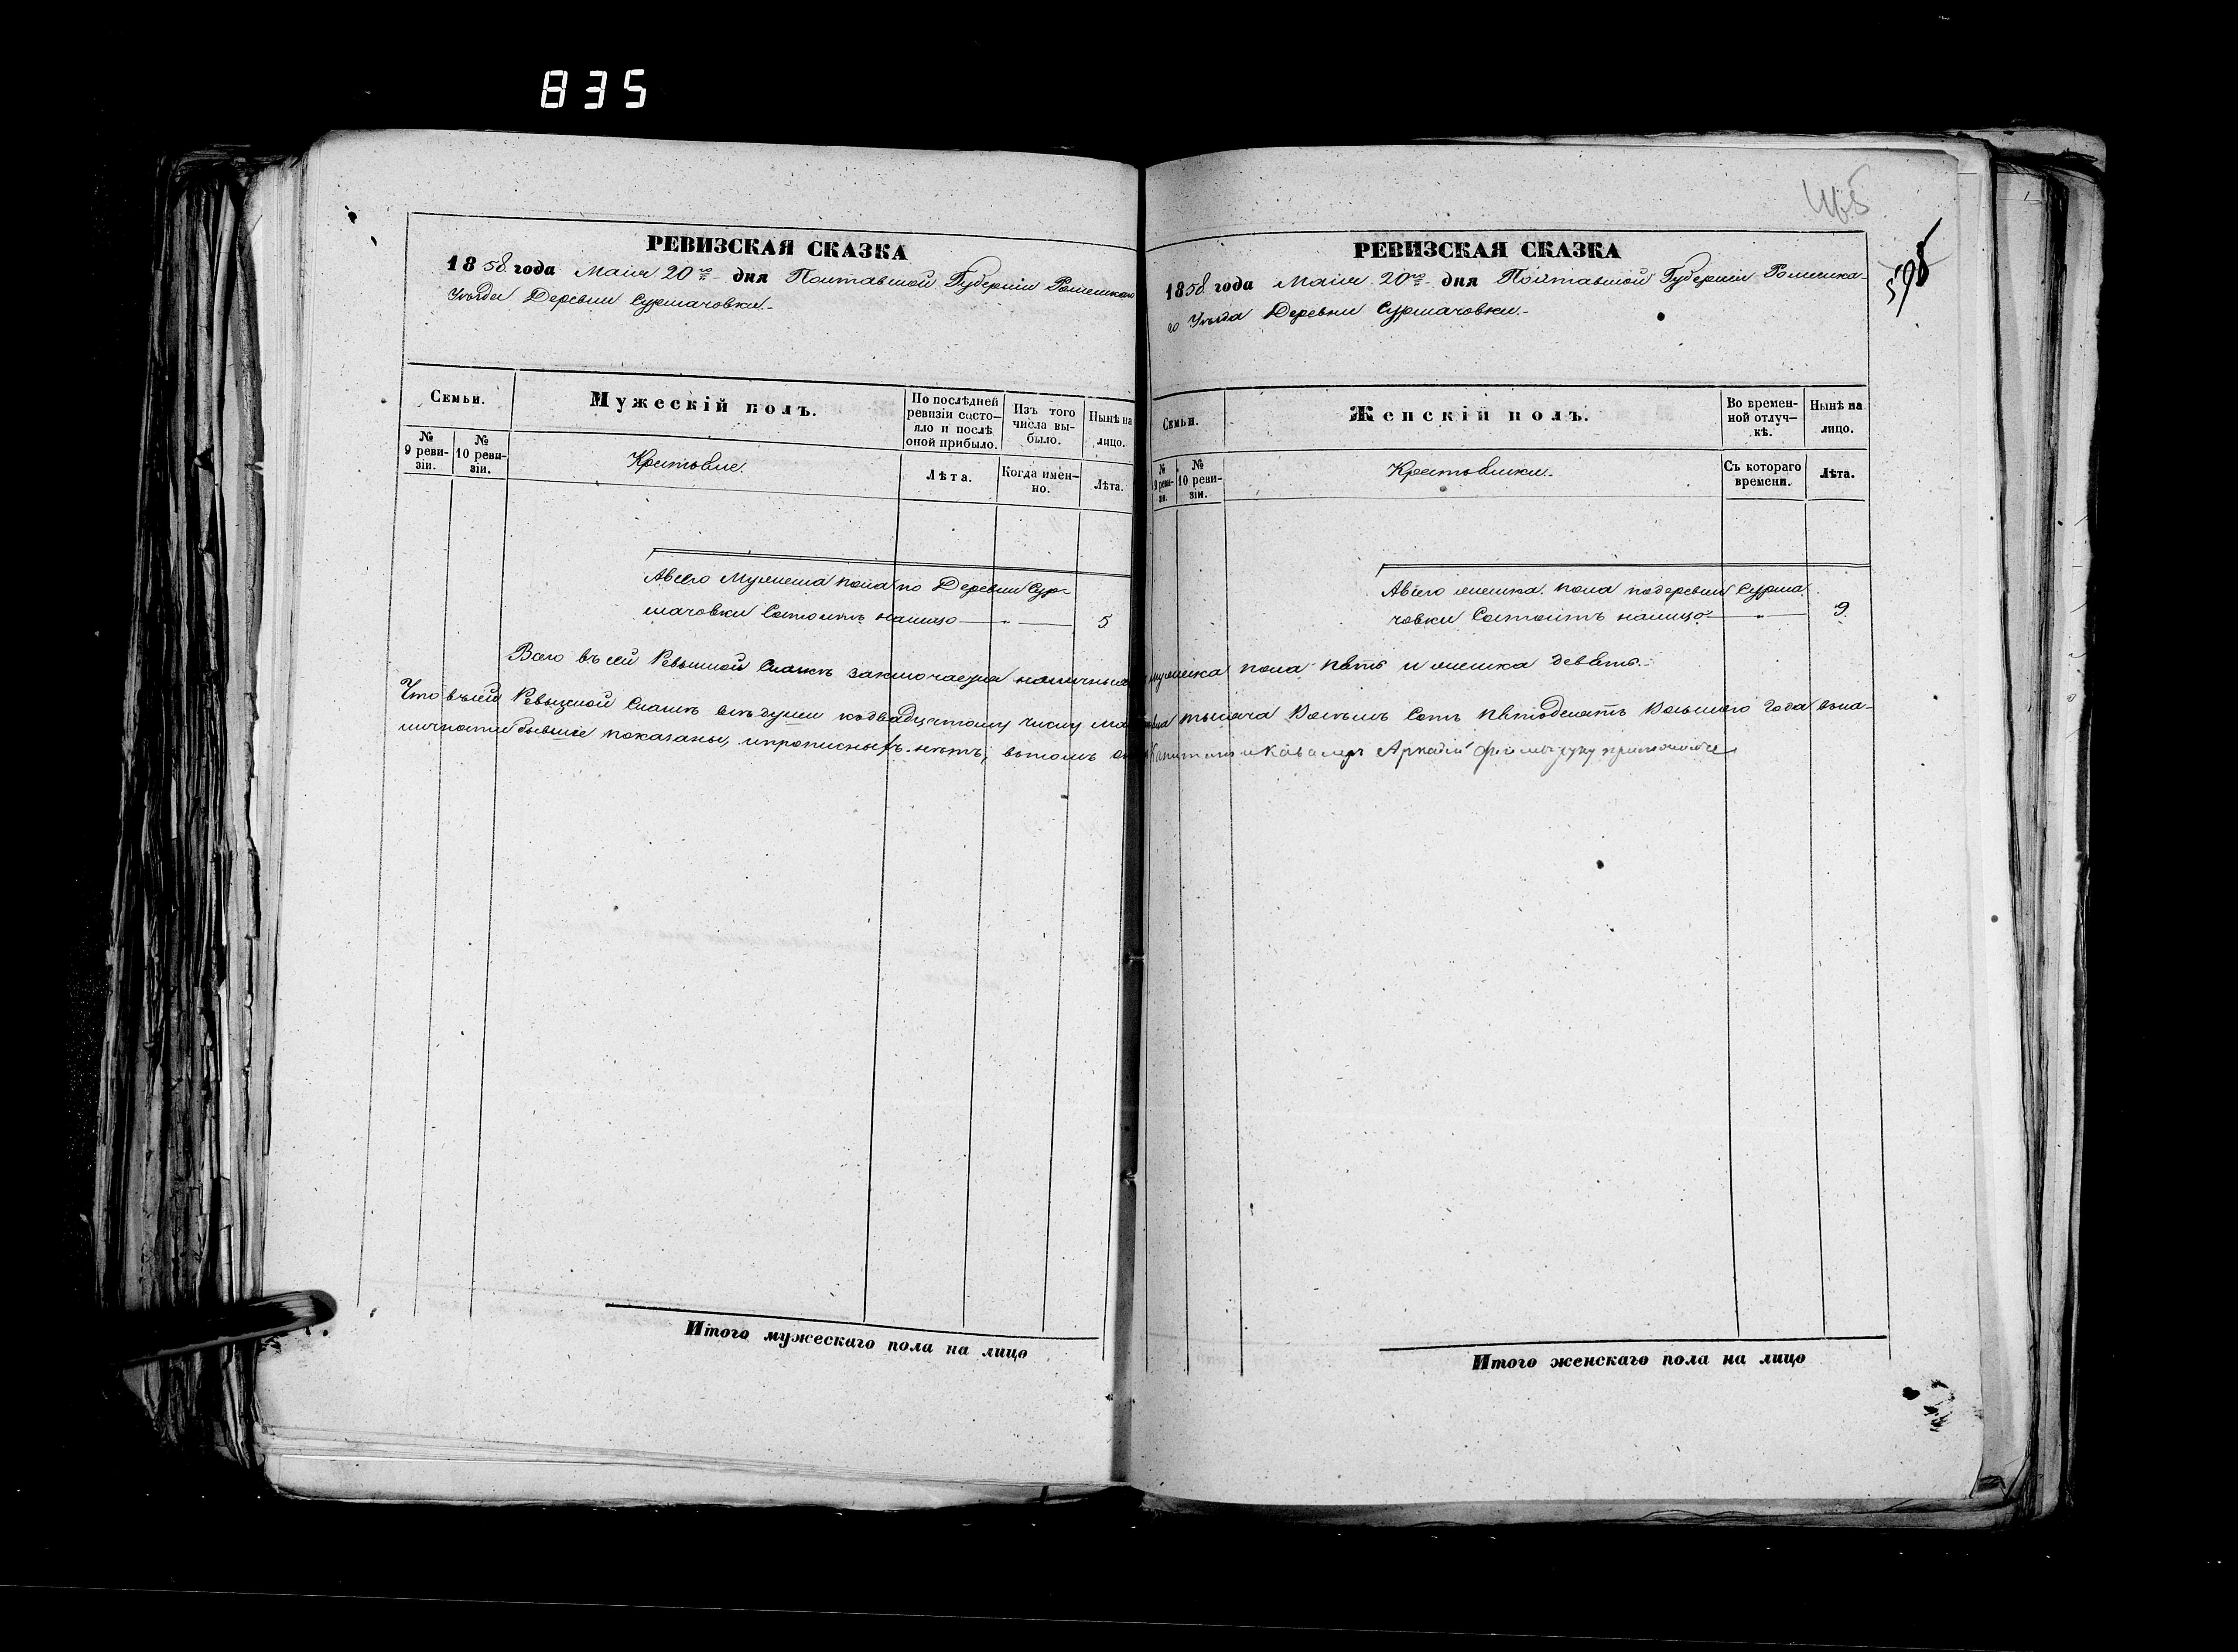 835
РЕВИЗСКАЯ СКАЗКА
1858 года Маія 20го дня Полтавской Губерніи Роменскаго
Уѣзда Деревни Сурмачовки.-
Семьи.
Мужескій полъ.
По послѣдней ревизіи состояло и послѣ оной прибыло.
Изъ того числа выбыло.
Нынѣ на лицо.
№ 9 ревизіи.
№ 10 ревизіи.
Крестьяне.
Лѣта.
Когда именно.
Лѣта.
А всего мужеска пола по Деревни Сур-
мачовки Состоитъ налицо — " — 5
Итого мужескаго пола на лицо
598
РЕВИЗСКАЯ СКАЗКА
1858 года Маія 20го дня Полтавской Губерніи Роменска-
го Уѣзда Деревни Сурмачовки.-
Семьи.
Женскій полъ.
Во временной отлучкѣ.
Нынѣ на лицо.
№ 9 ревизіи.
№ 10 ревизіи.
Крестьянки.
Съ котораго времени.
Лѣта.
А всего женска пола подеревни Сурма
човки Состоитъ налицо — " — 9
Всего въ сей Ревизской Сказкѣ заключается наличныхъ мужеска пола пять и женска девять.-
Что въ сей Ревизской Сказкѣ всѣ души къ двадцатому числу Маія тысяча восемь сотъ пятьдесятъ восьмого года въ на-
личности бывшіе показаны, и прописныхъ нѣтъ, въ томъ Капитанъ и Кавалеръ Аркадій руку приложилъ
Итого женскаго пола на лицо